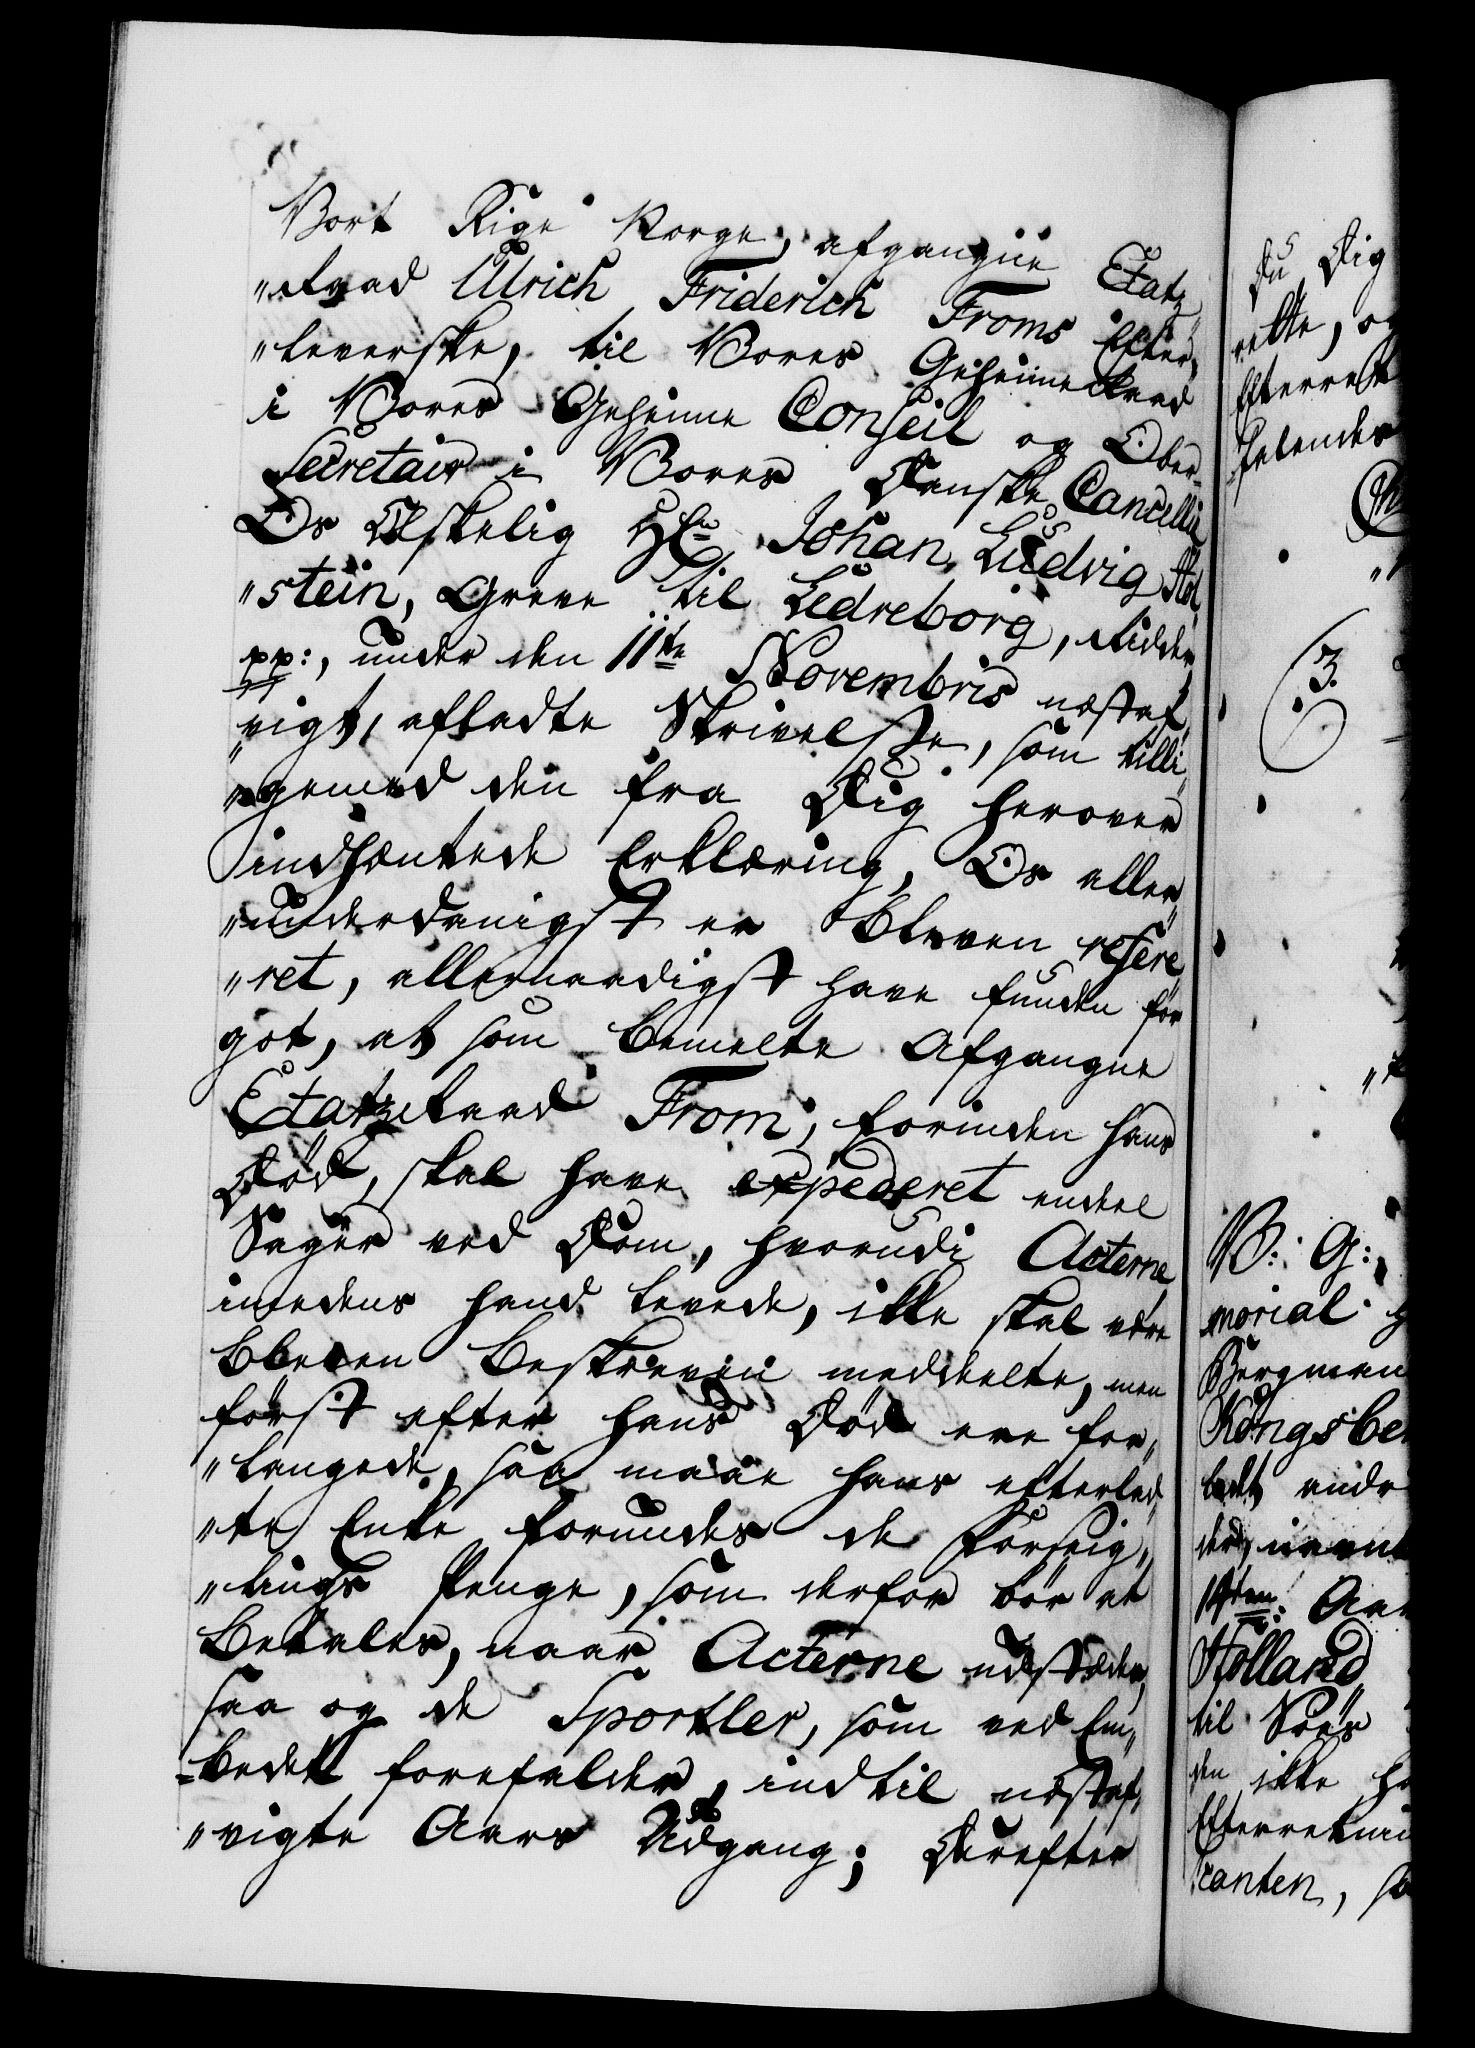 Vort Rige Norge, afgangne Etatz
"Raad Ulrich Friderich Froms Efter"
"leverske, til Vores Geheime Raad
i Vores Geheime Conseil og Ober-
Secretair i Vores Danske Cancellie
Os Elskelig Hr. Johan Ludvig Hol,
"stein, Greve til Ledreborg, Ridder
pp:, under den 11te Novembris næstaf"
"vigt, afladte Skrivelse, som tilli"
"gemed den fra Dig herover
indhæntede Erklæring, Os aller"
"underdanigst er bleven refere"
"ret, allernaadigst have funden for
got, at som bemelte Afgangne
Etatz Raad From, forinden hans
Død, skal have expederet endeel
Sager ved Dom, hvorudi Acterne
imedens hand levede, ikke skal være
bleven beskreven meddeelte, men
først efter hans Død ere for"
"langede, saa maae hans efterlad"
"te Enke forundes de Forseig"
"lings Penge, som derfor bør at
betales, naar Acterne udstædes,
saa og de Sportler, som ved Em"
=bedet forefalder, indtil næstaf"
"vigte Aars Udgang; Derefter
Du Dig
rette, og
Efterret
falendes
3.
V: G:
morial
Bergman
Kongsber
ladt
14ten: Aar
Holland
til Søes
den ikke
Efterretni
canten, sa